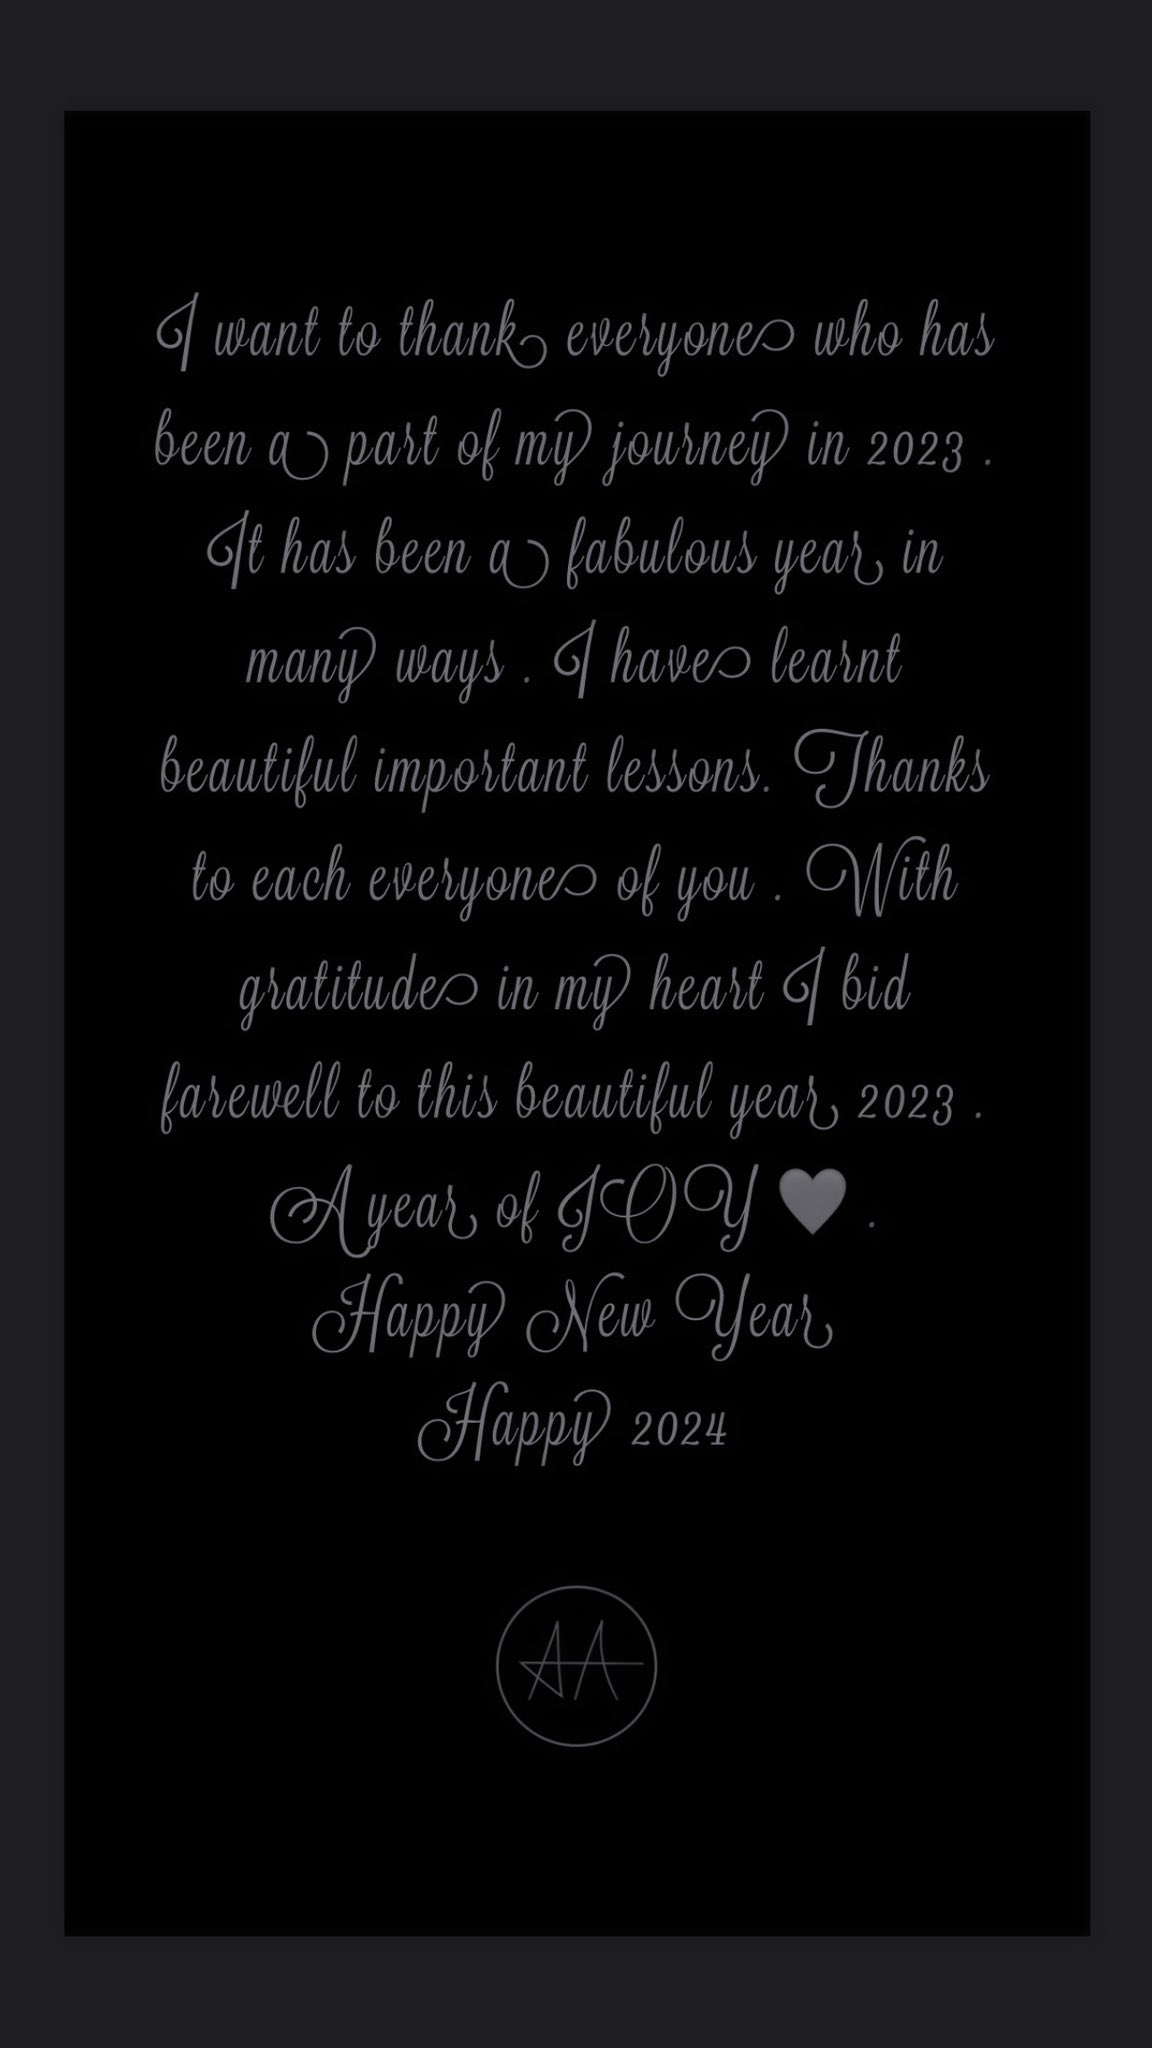 I want to thank everyone who has
been a part of my journey in 2023 .
It has been a fabulous year in
many ways . I have learnt
beautiful important lessons. Thanks
to each everyone of you . With
gratitude in my heart I bid
farewell to this beautiful year 2023 .
A year of JOY 🩶 .
Happy New Year
Happy 2024
AA